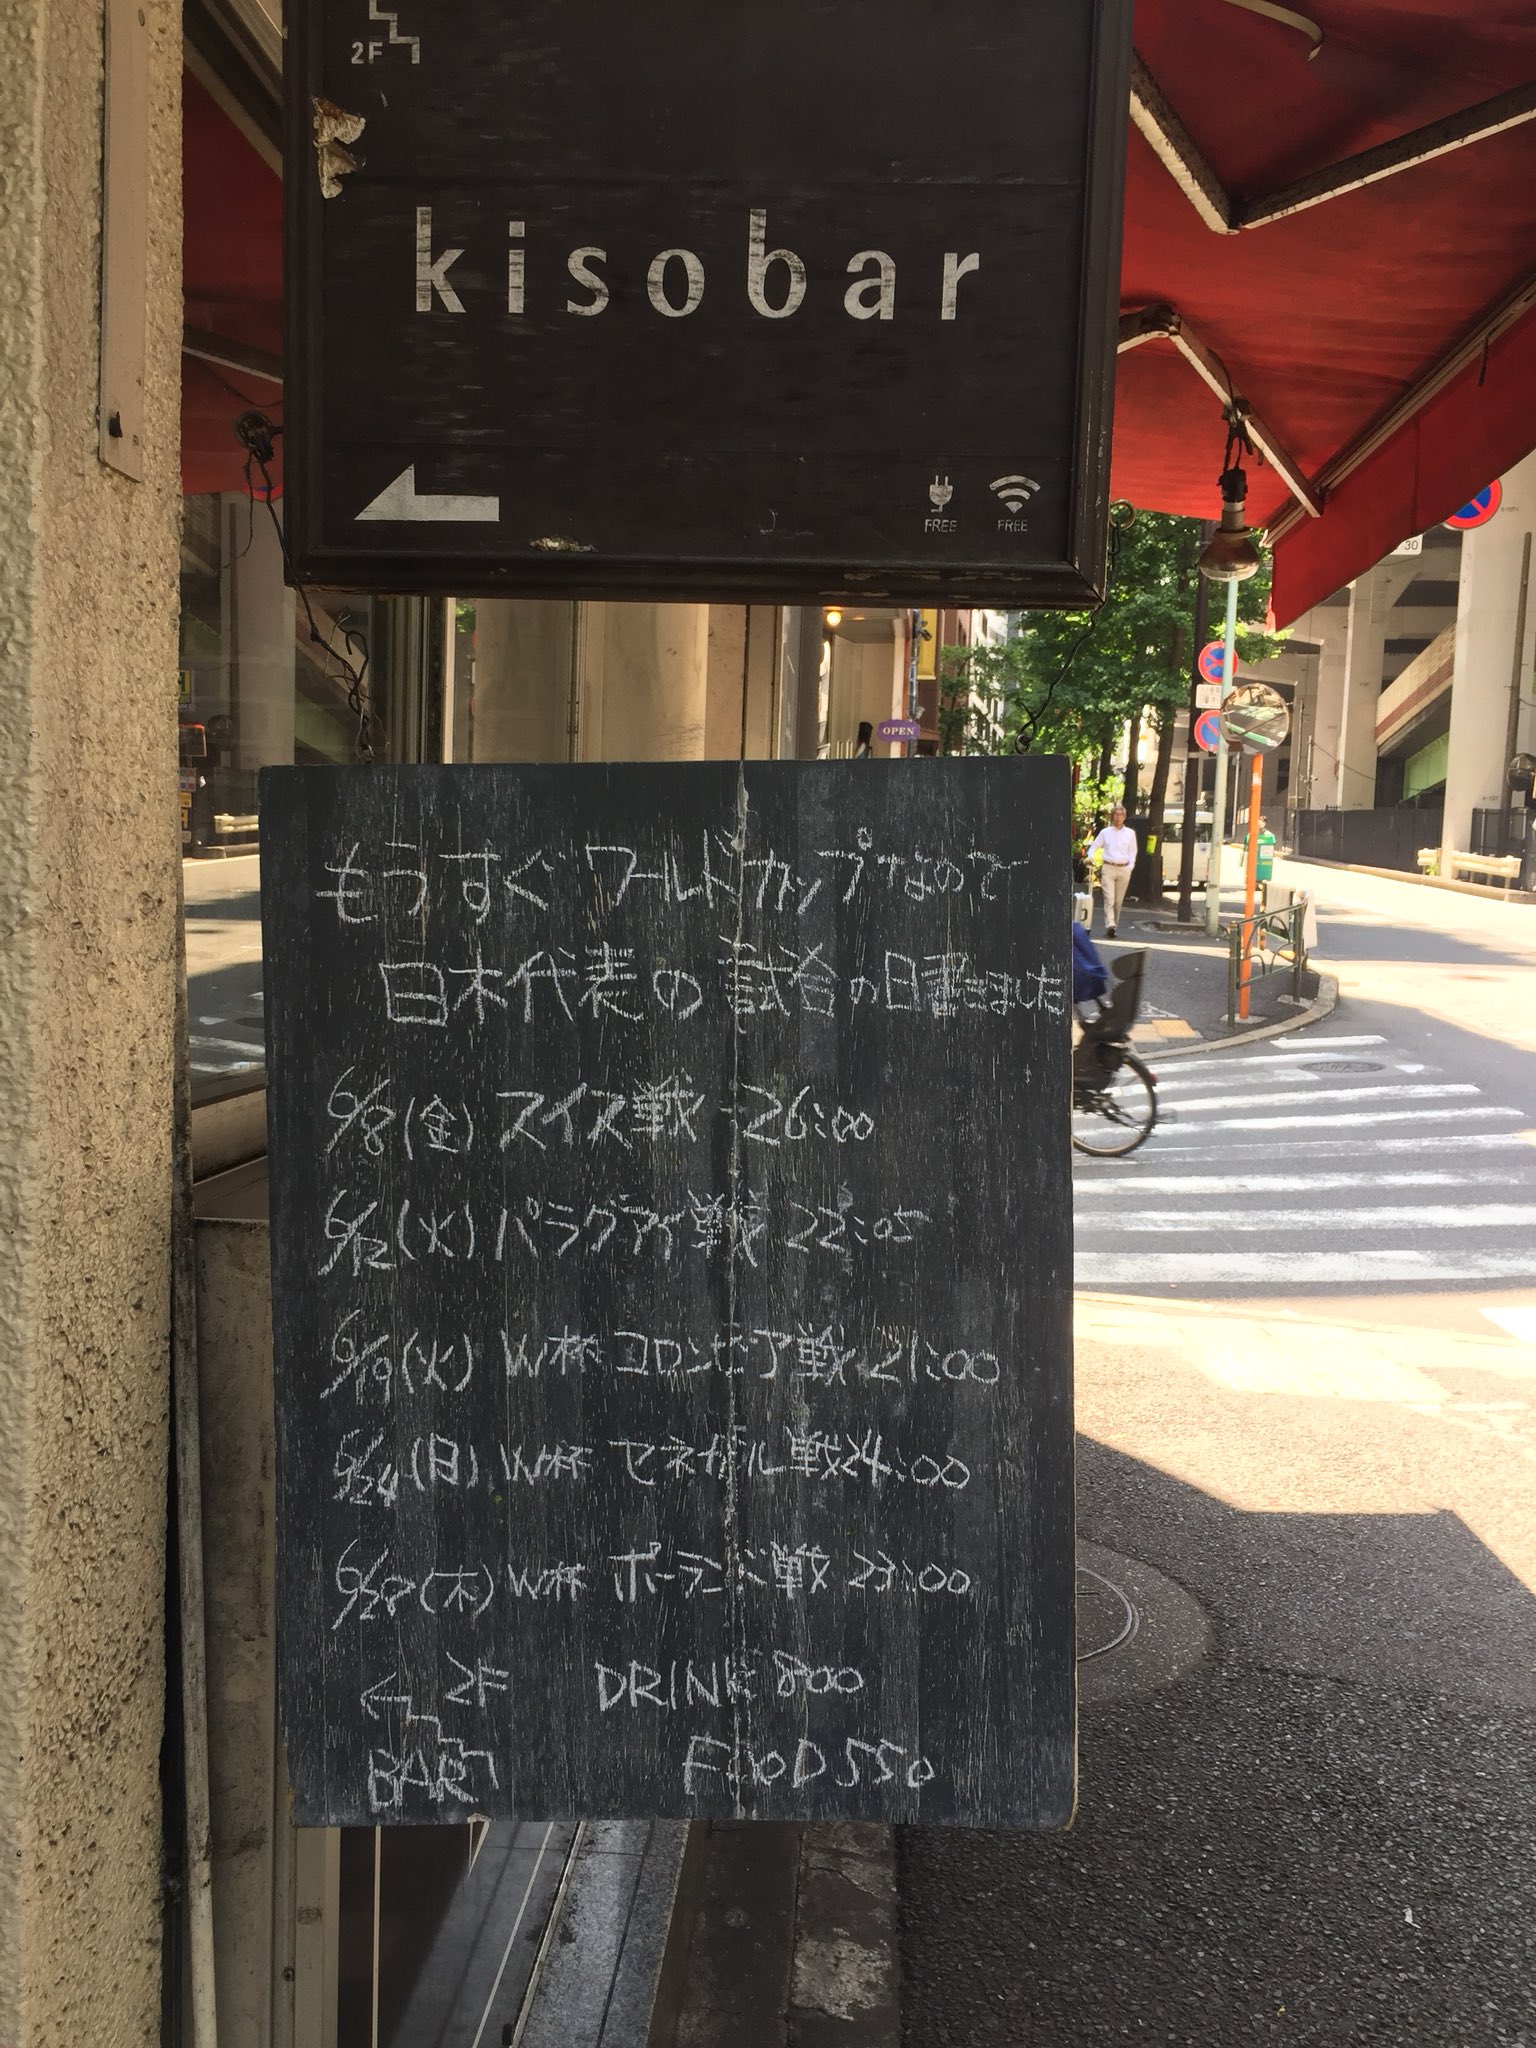 2F
kisobar
FREE FREE
OPEN
30
もうすぐワールドカップなので
日本代表の試合の日書きました
6/8(金) スイス戦 26:00
6/12(火) パラグアイ戦 22:05
6/19(火) W杯 コロンビア戦 21:00
6/24(日) W杯 セネガル戦 24:00
6/28(木) W杯 ポーランド戦 23:00
2F DRINK 800
BAR FOOD 550